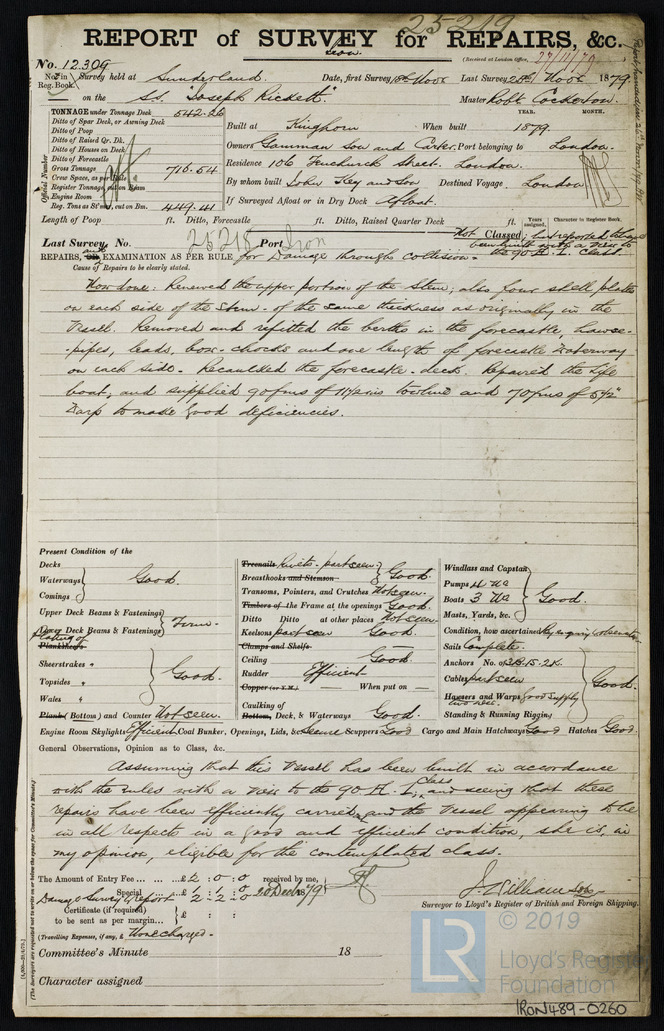 25219
REPORT of SURVEY for REPAIRS, &c.
Iron
No. 12309
(Received at London Office, 27/11/79)
No. in Reg. Book Survey held at Sunderland. Date, first Survey 18th Novr Last Survey 25th Novr 1879
on the S.S. "Joseph Rickett". Master Robt Cockerton.
TONNAGE under Tonnage Deck 542.26
Ditto of Spar Deck, or Awning Deck
Ditto of Poop
Ditto of Raised Qr. Dk.
Ditto of Houses on Deck
Ditto of Forecastle
Gross Tonnage 710.54
Crew Space, as per Rule
Register Tonnage, cut on Beam
Engine Room
Reg. Tons as St'mr, cut on Bm. 449.41
Official Number
YEAR. MONTH.
Built at Kinghorn When built 1879.
Owners Gamman Son and Carter. Port belonging to London.
Residence 106 Fenchurch Street. London.
By whom built John Key and Son Destined Voyage London
If Surveyed Afloat or in Dry Dock Afloat.
Length of Poop ft. Ditto, Forecastle ft. Ditto, Raised Quarter Deck ft.
Years assigned. Character in Register Book.
Not Classed; but reported to have been built with a view to the 90 A.1. class.
Last Survey, No. 25218 Port Iron
REPAIRS, and EXAMINATION AS PER RULE for Damage through collision.
Cause of Repairs to be clearly stated.
Now done: Renewed the upper portion of the Stem; also four shell plates
on each side of the Stem - of the same thickness as originally in the
Vessel. Removed and refitted the berths in the forecastle, hawse-
-pipes, leads, bow-chocks and one length of forecastle Waterway
on each side. Recaulked the forecastle-deck. Repaired the Life
boat, and supplied 90 fms of towline and 70 fms of 5½"
Warp to make good deficiencies.
Present Condition of the
Decks
Waterways Good.
Comings
Upper Deck Beams & Fastenings
Lower Deck Beams & Fastenings Firm.
Plating of
Planksheers
Sheerstrakes "
Topsides " Good.
Wales "
Plank (Bottom) and Counter Not seen.
Treenails Rivets - part seen.
Breasthooks and Stemson Good.
Transoms, Pointers, and Crutches Not seen.
Timbers of the Frame at the openings Good.
Ditto Ditto at other places Not seen.
Keelsons part seen Good.
Clamps and Shelfs
Ceiling Good.
Rudder Efficient
Copper (or Y.M.) When put on
Caulking of Bottom, Deck, & Waterways Good.
Windlass and Capstan
Pumps 4 Wa
Boats 3 Wa Good.
Masts, Yards, &c.
Condition, how ascertained By enquiry & observation
Sails Complete.
Anchors No. of 3B. 1S. 2K.
Cables part seen Good.
Hawsers and Warps Good supply
Standing & Running Rigging
Engine Room Skylights Efficient Coal Bunker, Openings, Lids, &c. Secure Scuppers Good Cargo and Main Hatchways Good Hatches Good.
General Observations, Opinion as to Class, &c.
Assuming that this Vessel has been built in accordance
with the rules with a view to the 90 A.1. Class, and seeing that these
repairs have been efficiently carried and the Vessel appearing to be
in all respects in a good and efficient condition, she is, in
my opinion, eligible for the contemplated class.
The Amount of Entry Fee ... £2 : 0 : 0 received by me,
Special £1 : 1 : 0
Damage Survey & report 2 : 2 : 0 20 Decr 1879
Certificate (if required) £ : :
to be sent as per margin...
(Travelling Expenses, if any, £ None charged.
J. Williamson
Surveyor to Lloyd's Register of British and Foreign Shipping.
Committee's Minute 18
Character assigned
(The Surveyors are requested not to write on or below the space for Committee's Minute.)
© 2019
LR
Lloyd's Register
Foundation
IRON489-0260